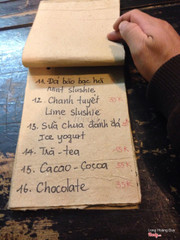 11. Đá bào bạc hà
Mint slushie
12. Chanh tuyết 55K
Lime slushie
13. Sữa chua đánh đá
Ice yogurt
14. Trà - tea 55K
15. Cacao - Cocoa 55K
16. Chocolate 55K